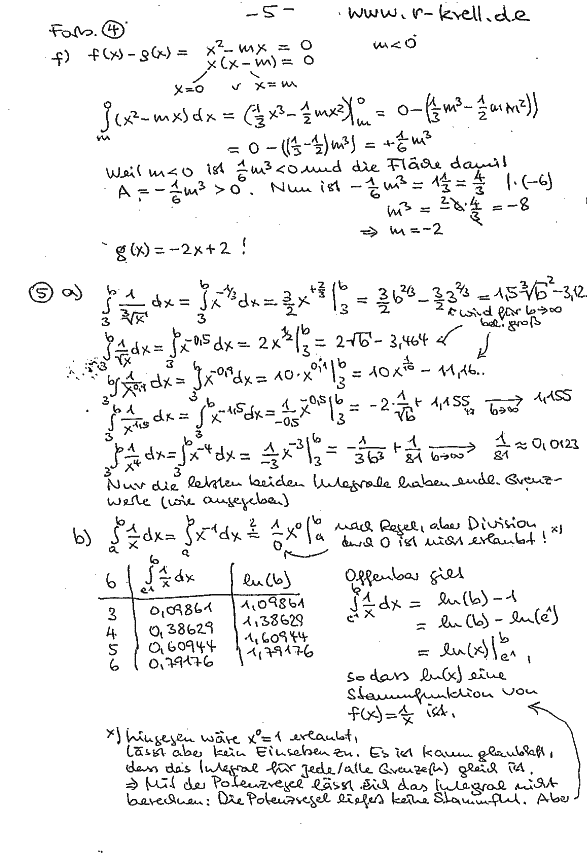 -5- www.r-krell.de
Forts. ④
f) f(x)-g(x) = x²-mx = 0 m<0
x(x-m) = 0
x=0 v x=m
∫ₘ⁰(x²-mx)dx = (1/3 x³ - 1/2 mx²)|ₘ⁰ = 0-(1/3 m³ - 1/2 m m²)
= 0-((1/3-1/2)m³) = +1/6 m³
Weil m<0 ist 1/6 m³<0 und die Fläche damit
A = -1/6 m³ > 0. Nun ist -1/6 m³ = 1 1/3 = 4/3 |·(-6)
m³ = -8
⇒ m=-2
g(x) = -2x+2 !
⑤ a) ∫₃ᵇ 1/∛x dx = ∫₃ᵇ x^(-1/3) dx = 3/2 x^(+2/3)|₃ᵇ = 3/2 b^(2/3) - 3/2 3^(2/3) = 1,5∛b² - 3,12
wird für b→∞
bel. groß
∫₃ᵇ 1/√x dx = ∫₃ᵇ x^(-0,5) dx = 2x^(1/2)|₃ᵇ = 2√b - 3,464
∫₃ᵇ 1/x^0,9 dx = ∫₃ᵇ x^(-0,9) dx = 10·x^0,1|₃ᵇ = 10x^(1/10) - 11,16..
∫₃ᵇ 1/x^1,5 dx = ∫₃ᵇ x^(-1,5) dx = 1/-0,5 x^(-0,5)|₃ᵇ = -2·1/√b + 1,155.. →(b→∞) 1,155
∫₃ᵇ 1/x⁴ dx = ∫₃ᵇ x⁻⁴ dx = 1/-3 x⁻³|₃ᵇ = -1/3b³ + 1/81 →(b→∞) 1/81 ≈ 0,0123
Nur die letzten beiden Integrale haben endl. Grenz-
werte (wie angegeben)
b) ∫ₐᵇ 1/x dx = ∫ₐᵇ x⁻¹ dx ≟ 1/0 x⁰|ₐᵇ nach Regel, aber Division
durch 0 ist nicht erlaubt! *)
b | ∫ₑ₁ᵇ 1/x dx | ln(b)
3 | 0,09861 | 1,09861
4 | 0,38629 | 1,38629
5 | 0,60944 | 1,60944
6 | 0,79176 | 1,79176
Offenbar gilt
∫ₑ₁ᵇ 1/x dx = ln(b)-1
= ln(b)-ln(e¹)
= ln(x)|ₑ₁ᵇ,
so dass ln(x) eine
Stammfunktion von
f(x)=1/x ist.
*) hingegen wäre x⁰=1 erlaubt,
lässt aber kein Einsetzen zu. Es ist kaum glaubhaft,
dass das Integral für jede/alle Grenze(n) gleich ist.
⇒ Mit der Potenzregel lässt sich das Integral nicht
berechnen: Die Potenzregel liefert keine Stammfkt. Aber